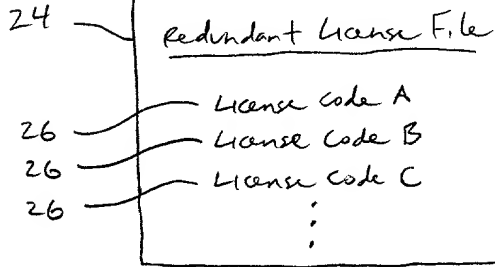 24
Redundant License File
26 License code A
26 License code B
26 License code C